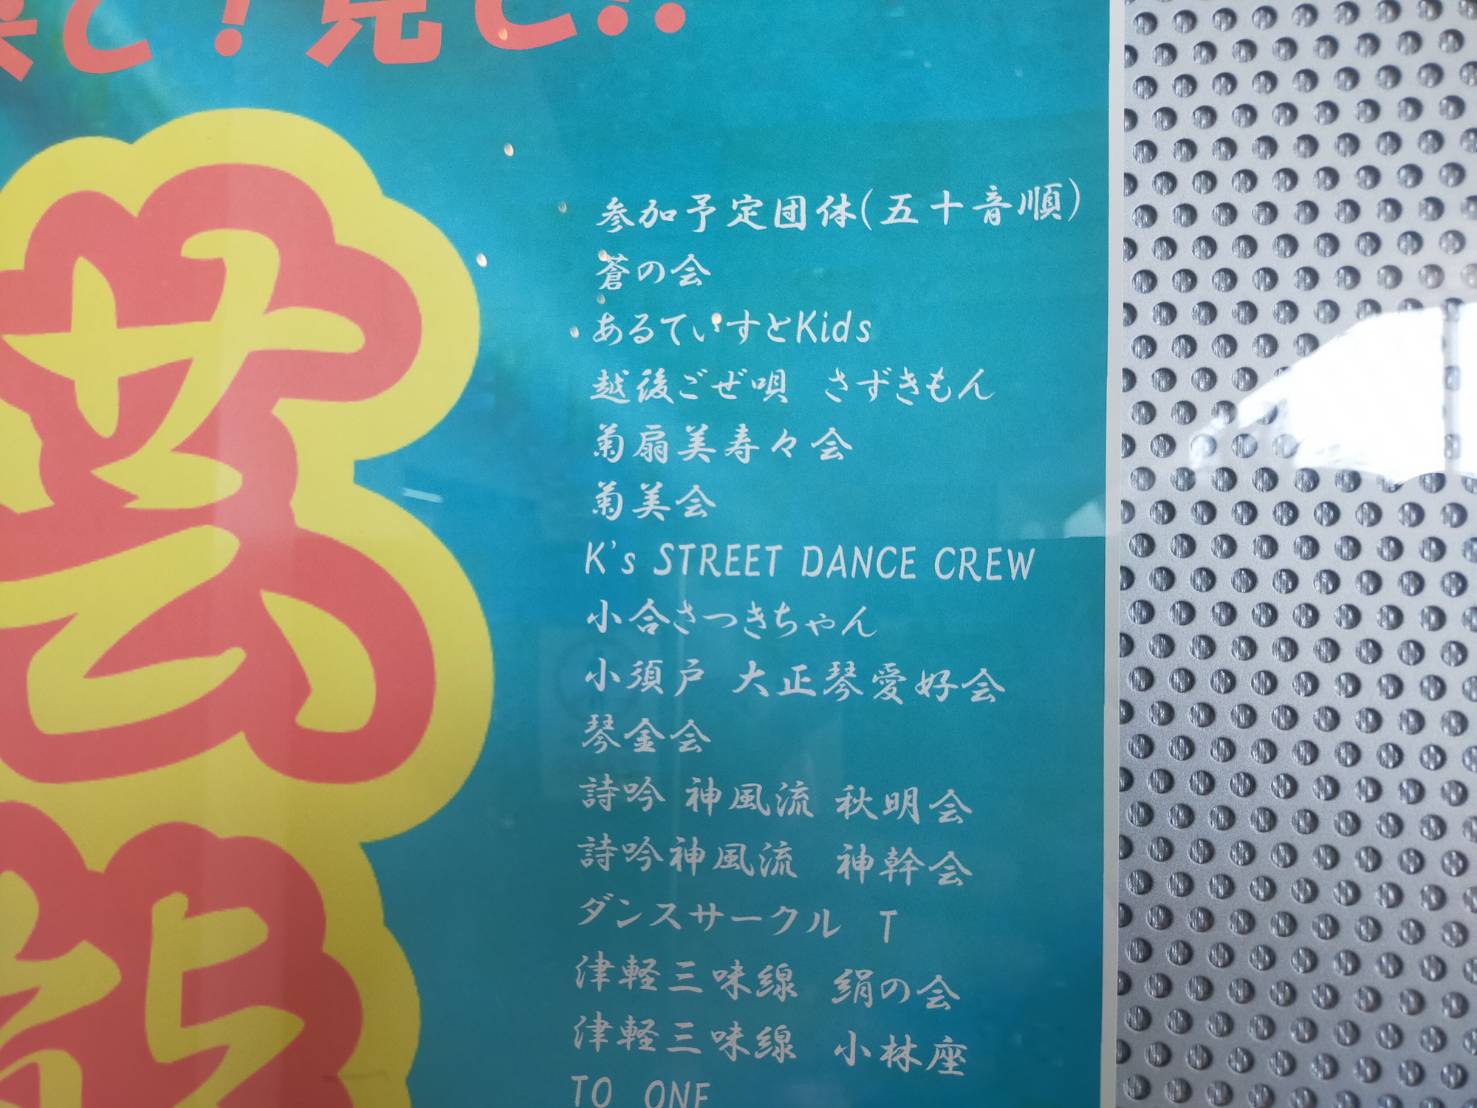 と！見
芸
能
参加予定団体(五十音順)
蒼の会
あるてぃすとKids
越後ごぜ唄　さずきもん
菊扇美寿々会
菊美会
K's STREET DANCE CREW
小合さつきちゃん
小須戸　大正琴愛好会
琴金会
詩吟 神風流 秋明会
詩吟神風流　神幹会
ダンスサークル　T
津軽三味線　絹の会
津軽三味線　小林座
TO ONE